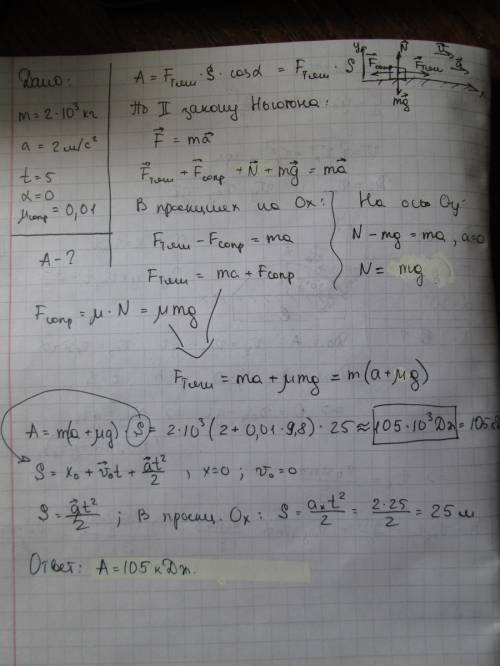 Дано:
m = 2·10³ кг
a = 2 м/с²
t = 5
α = 0
μсопр = 0,01
A - ?
A = Fтяги · S · cosα = Fтяги · S
По II закону Ньютона:
F⃗ = ma⃗
F⃗тяги + F⃗сопр + N⃗ + mg⃗ = ma⃗
В проекциях на Ox:
Fтяги - Fсопр = ma
Fтяги = ma + Fсопр
На ось Oy:
N - mg = ma, a=0
N = mg
Fсопр = μ · N = μmg
Fтяги = ma + μmg = m(a + μg)
A = m(a + μg) · S = 2·10³ (2 + 0,01·9,8) · 25 ≈ 105·10³ Дж = 105к
S = x₀ + v⃗₀t + a⃗t²/2 , x=0 ; v₀=0
S = a⃗t²/2 ; В проекц. Ox: S = aₓt²/2 = 2·25/2 = 25 м
Ответ: A = 105 кДж.
y
F⃗сопр
N⃗
F⃗тяги
mg⃗
x